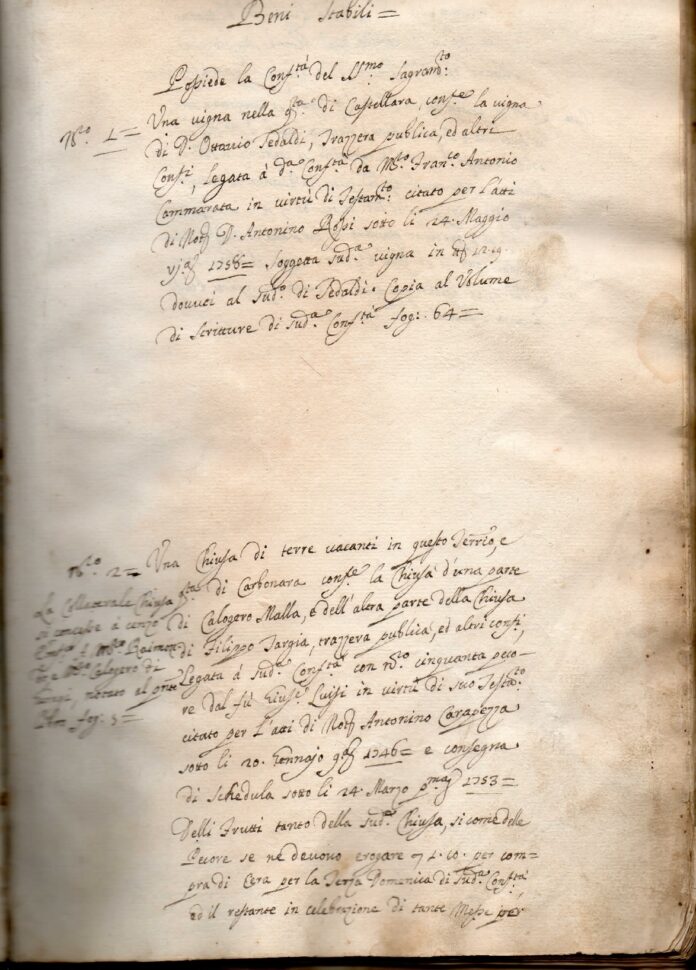 Beni Stabili =
Possiede la Conf.tà del SS.mo Sagram.to
N.ro 1 =
Una vigna nella q.ta di Castellara, conf.e la vigna
di D. Ottavio Tedaldi, Trazzera publica, ed altri
Conf.i, legata à d.a Conf.tà da M.ro Fran.co Antonio
Cammarata in virtù di Testam.to citato per l'atti
di Not.r D. Antonino Rossi sotto li 24. Maggio
vj.a 1758 = Soggetta sud.a vigna in
dovuti al sud.o di Tedaldi. Copia al Volume
di Scritture di sud.a Conf.tà fog: 64 =
N.ro 2 =
Una Chiusa di terre vacanti in questo Terr.rio, e
q.ta di Carbonara conf.e la Chiusa d'una parte
di Calogero Malla, e dell'altra parte della Chiusa
di Filippo Targia, trazzera publica, ed altri confi,
Legata à sud.a Conf.tà con n.ro cinquanta peco-
re dal fù Gius.e Luisi in virtù di suo Testa.to
citato per l'atti di Not.r Antonino Carapezza
sotto li 20. Gennajo 9.a 1746 = e consegna
di Schedula sotto li 24. Marzo p.ma 1753 =
Delli Frutti tanto della sud.a Chiusa, si come delle
Pecore se ne devono erogare per com=
pra di Cera per la Terza Domenica di sud.a Conf.tà
ed il restante in celebrazione di tante Messe per
La Collaterale Chiusa
si concesse à censo
à M.ro Raimon
do e M.ro Calogero di
notato al pnte
fog: 5 =